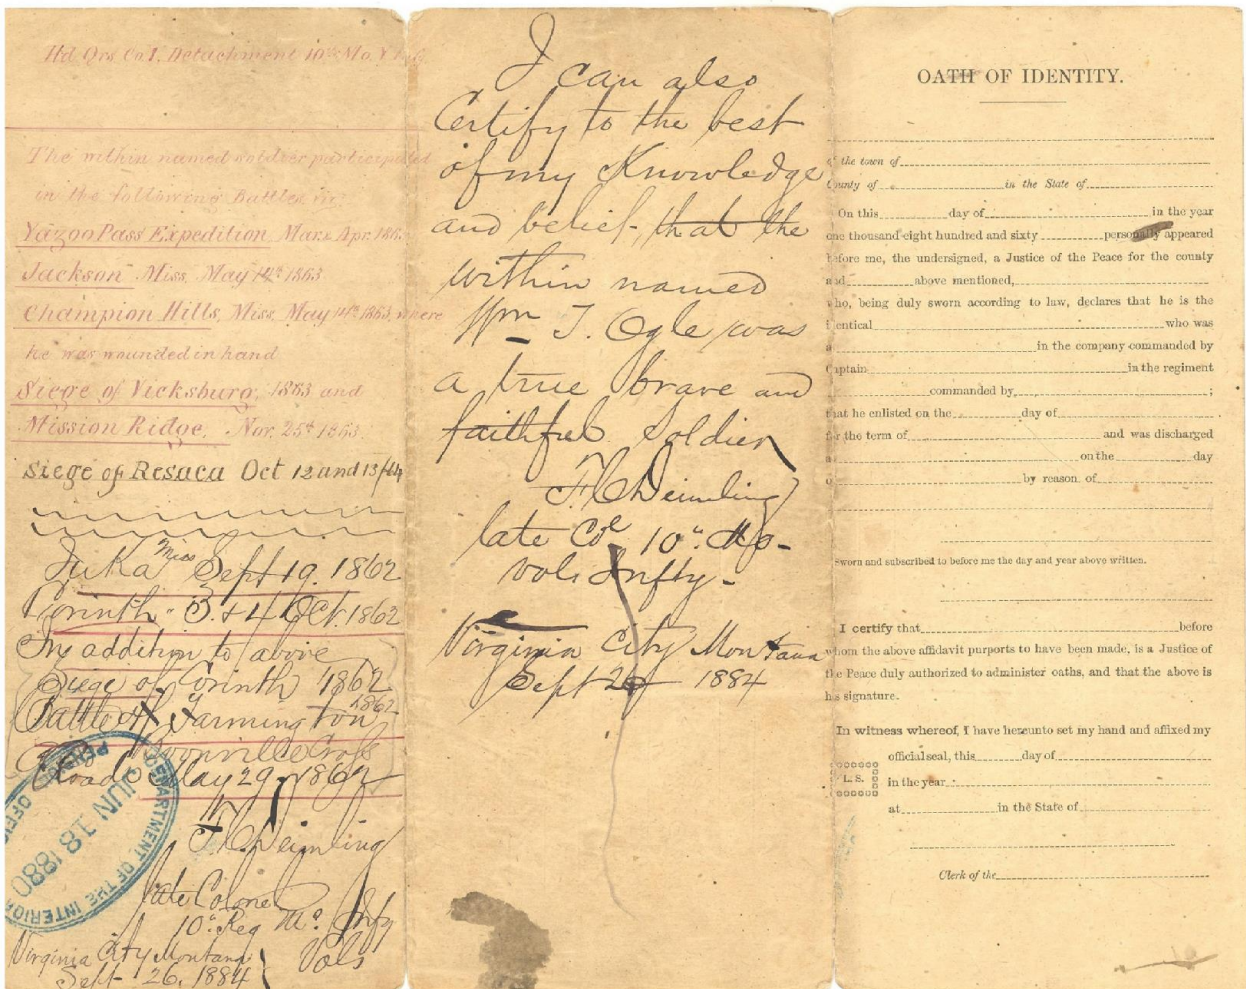 Hd Qrs Co I. Detachment 10th Mo. V
The within named soldier participated
in the following Battles viz:
Yazoo Pass Expedition Mar & Apr. 186
Jackson Miss. May 14th 1863
Champion Hills, Miss. May 14th 1863, where
he was wounded in hand
Siege of Vicksburg, 1863 and
Mission Ridge, Nov. 25th 1863
Siege of Resaca Oct 12 and 13/64
Iuka Miss Sept 19. 1862
Corinth - 3 & 4 Oct. 1862
In addition to above
Siege of Corinth 1862
Battle of Farmington 1862
Boonville Cross
Roads May 29, 1862
F. C. Deimling
late Colonel
10th Reg Mo. Infy
Vols
Virginia City Montana
Sept 26, 1884
DEPARTMENT OF THE INTERIOR
JUN 18 1880
I can also
Certify to the best
of my Knowledge
and belief, that the
within named
Wm T. Ogle was
a true brave and
faithful Soldier
F. C. Deimling
late Col 10" Mo-
Vols Infty-
Virginia City Montana
Sept 1884
OATH OF IDENTITY.
the town of
County of in the State of
On this day of in the year
one thousand eight hundred and sixty personally appeared
before me, the undersigned, a Justice of the Peace for the county
and above mentioned,
who, being duly sworn according to law, declares that he is the
identical who was
a in the company commanded by
Captain in the regiment
commanded by ;
that he enlisted on the day of
for the term of and was discharged
on the day
by reason of
Sworn and subscribed to before me the day and year above written.
I certify that before
whom the above affidavit purports to have been made, is a Justice of
the Peace duly authorized to administer oaths, and that the above is
his signature.
In witness whereof, I have hereunto set my hand and affixed my
official seal, this day of
L. S.
in the year
at in the State of
Clerk of the